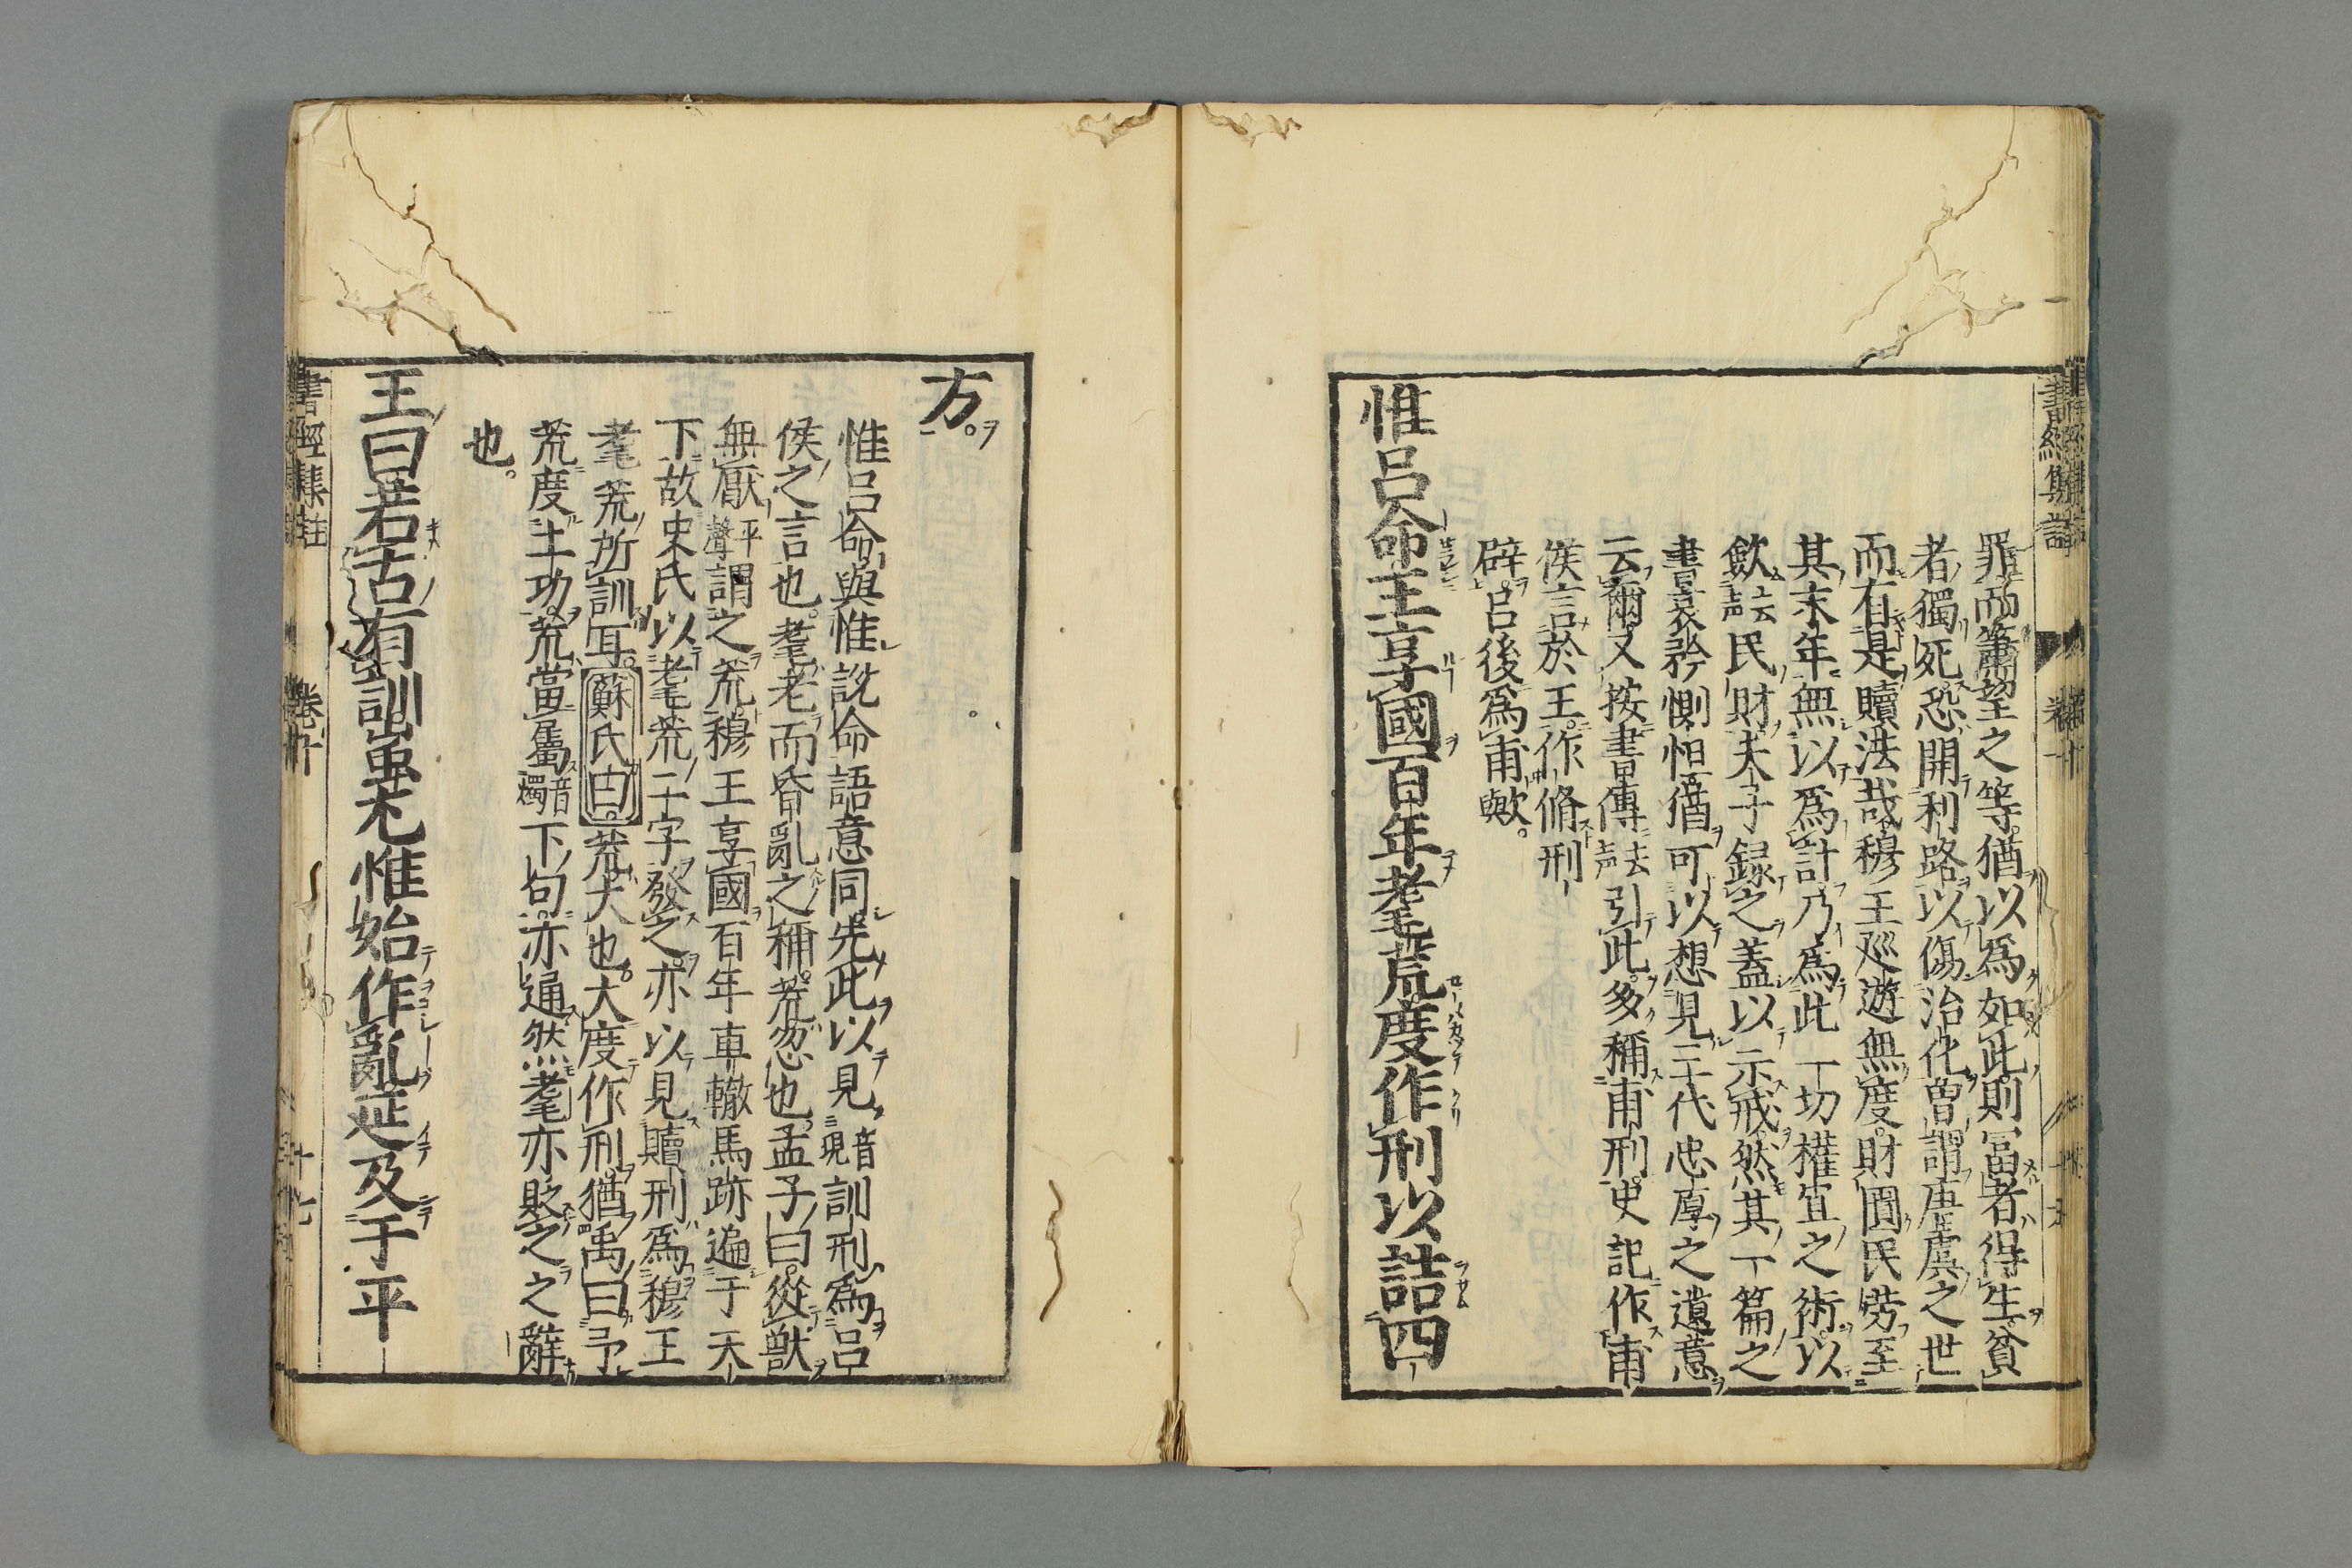 罪而蕭望之等猶以爲如此則冨者得生貧
者獨死恐開利路以傷治化曾謂唐虞之世
而有是贖法哉穆王巡遊無度財匱民勞至
其末年無以爲計乃爲此一切權宜之術以
歛去声民財夫子録之蓋以示戒然其一篇之
書哀矜惻怛猶可以想見三代忠厚之遺意
云爾又按書傳去声引此多稱甫刑史記作甫
侯言於王作脩刑
辟呂後爲甫歟
惟呂命王享國百年耄荒度作刑以詰四
方
惟呂命與惟說命語意同先此以見音現訓刑爲呂
侯之言也耄老而昏亂之稱荒忽也孟子曰從獸
無厭平聲謂之荒穆王享國百年車轍馬跡遍于天
下故史氏以耄荒二字發之亦以見贖刑爲穆王
耄荒所訓耳蘇氏曰荒大也大度作刑猶禹曰予
荒度土功荒當屬音燭下句亦通然耄亦貶之之辭
也
王曰若古有訓蚩尤惟始作亂延及于平
書經集註 卷十 十七